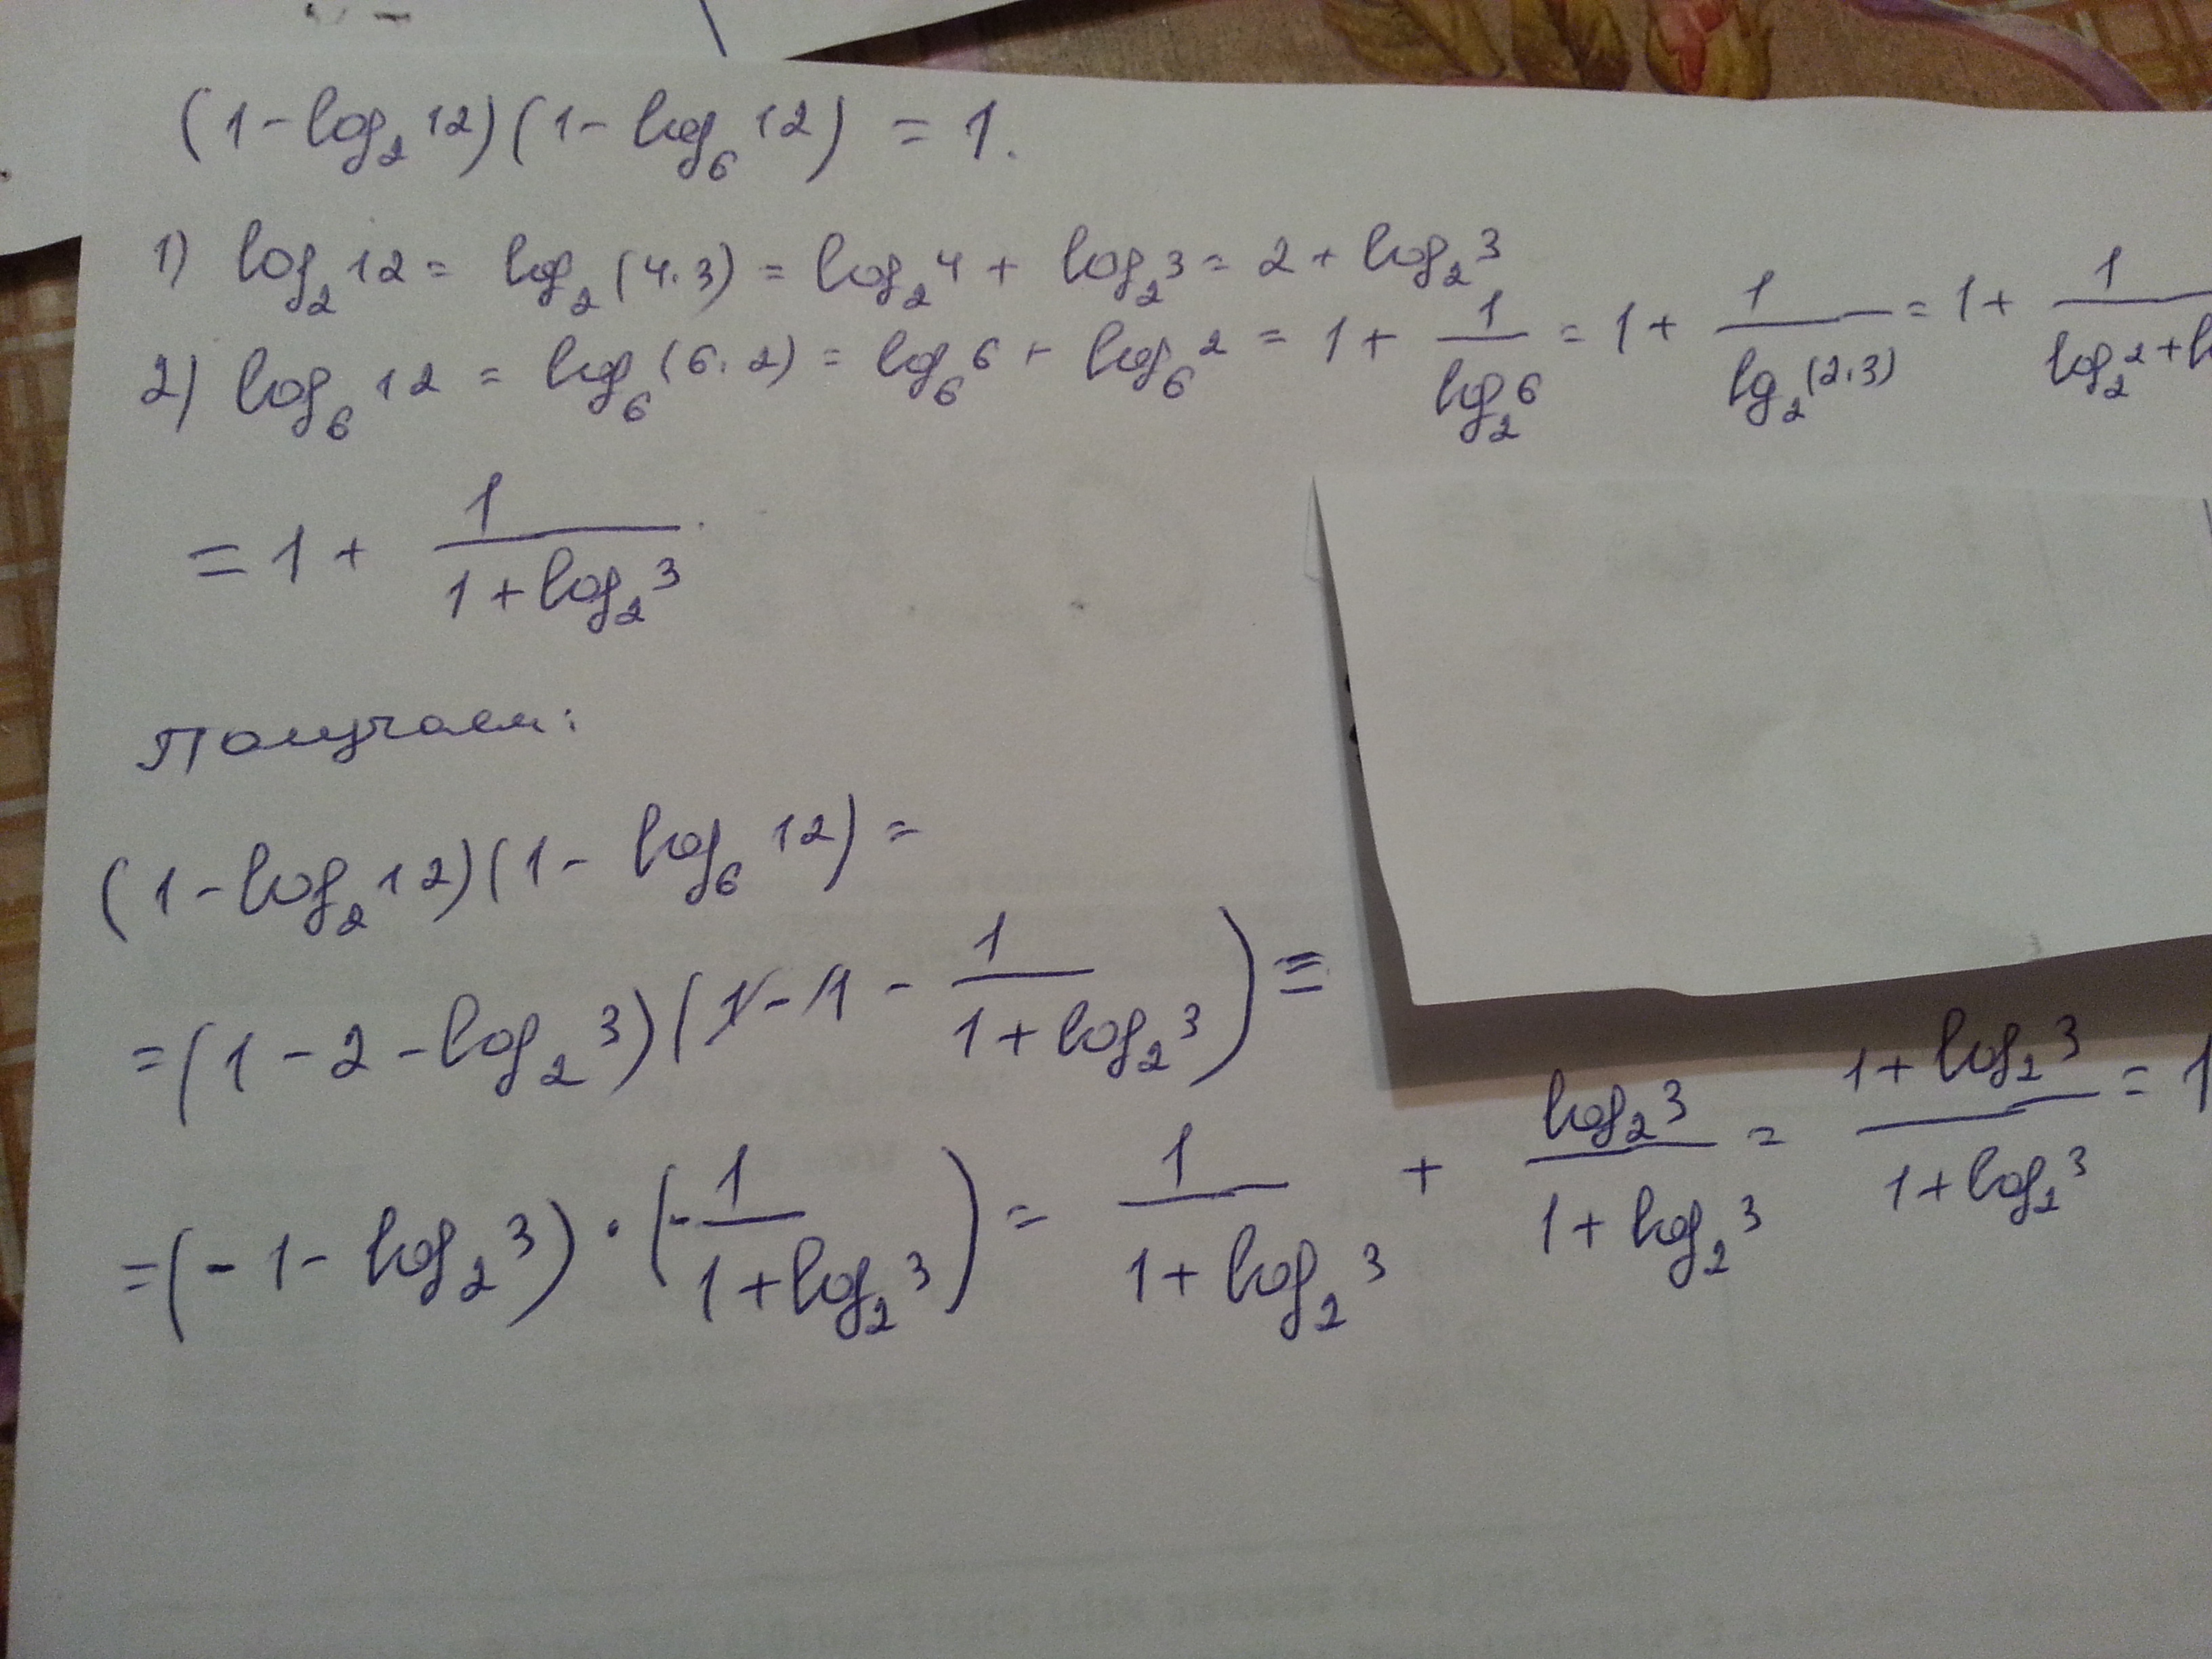 (1 - log₂ 12)(1 - log₆ 12) = 1.
1) log₂ 12 = log₂ (4·3) = log₂ 4 + log₂ 3 = 2 + log₂ 3
2) log₆ 12 = log₆ (6·2) = log₆ 6 + log₆ 2 = 1 + 1/log₂ 6 = 1 + 1/lg₂ (2·3) = 1 + 1/log₂ 2 +
= 1 + 1/(1 + log₂ 3)
Получаем:
(1 - log₂ 12)(1 - log₆ 12) =
= (1 - 2 - log₂ 3)(1 - 1 - 1/(1 + log₂ 3)) =
= (-1 - log₂ 3) · (-1/(1 + log₂ 3)) = 1/(1 + log₂ 3) + log₂ 3/(1 + log₂ 3) = (1 + log₂ 3)/(1 + log₂ 3) = 1